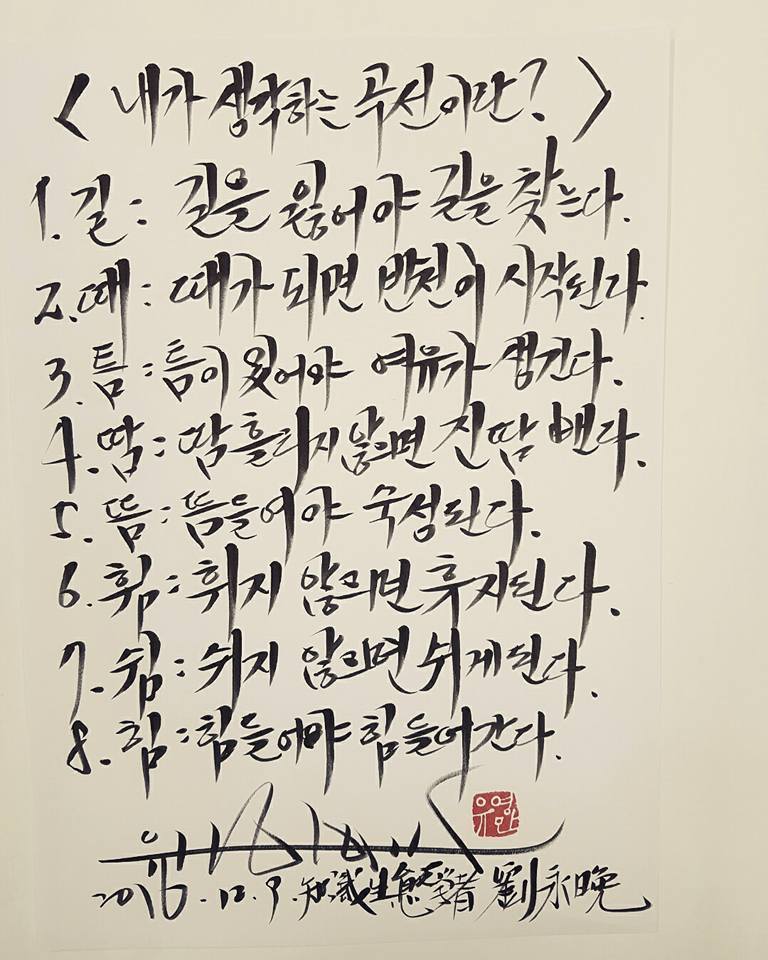 < 내가 생각하는 곡선이란? >
1. 길 : 길을 잃어야 길을 찾는다.
2. 때 : 때가 되면 반전이 시작된다.
3. 틈 : 틈이 있어야 여유가 생긴다.
4. 땀 : 땀 흘리지 않으면 진땀 뺀다.
5. 뜸 : 뜸들어야 숙성된다.
6. 휨 : 휘지 않으면 휴지된다.
7. 쉼 : 쉬지 않으면 쉬게된다.
8. 힘 : 힘들어야 힘들어간다.
유영만
2016.12.9. 知識生態學者 劉永晩